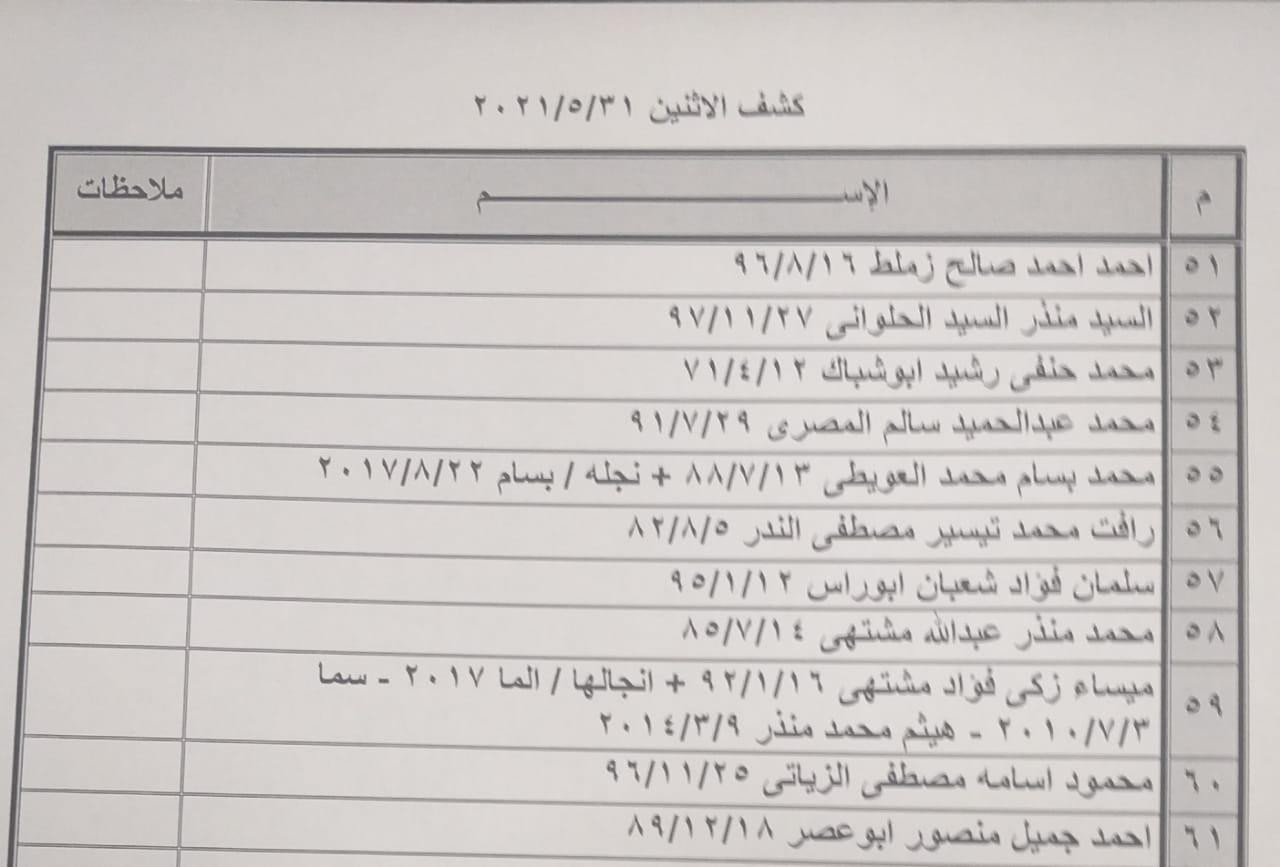 كشف الاثنين ٢٠٢١/٥/٣١
م الإســـــــــم ملاحظات
٥١ احمد احمد صالح زملط ٩٦/٨/١٦
٥٢ السيد منذر السيد الحلوانى ٩٧/١١/٢٧
٥٣ محمد حنفى رشيد ابوشباك ٧١/٤/١٢
٥٤ محمد عبدالحميد سالم المصرى ٩١/٧/٢٩
٥٥ محمد بسام محمد العويطى ٨٨/٧/١٣ + نجله / بسام ٢٠١٧/٨/٢٢
٥٦ رافت محمد تيسير مصطفى الندر ٨٢/٨/٥
٥٧ سلمان فؤاد شعبان ابوراس ٩٥/١/١٢
٥٨ محمد منذر عبدالله مشتهى ٨٥/٧/١٤
٥٩ ميساء زكى فؤاد مشتهى ٩٢/١/١٦ + انجالها / الما ٢٠١٧ - سما
٢٠١٠/٧/٣ - هيثم محمد منذر ٢٠١٤/٣/٩
٦٠ محمود اسامه مصطفى الزياتى ٩٦/١١/٢٥
٦١ احمد جميل منصور ابوعصر ٨٩/١٢/١٨